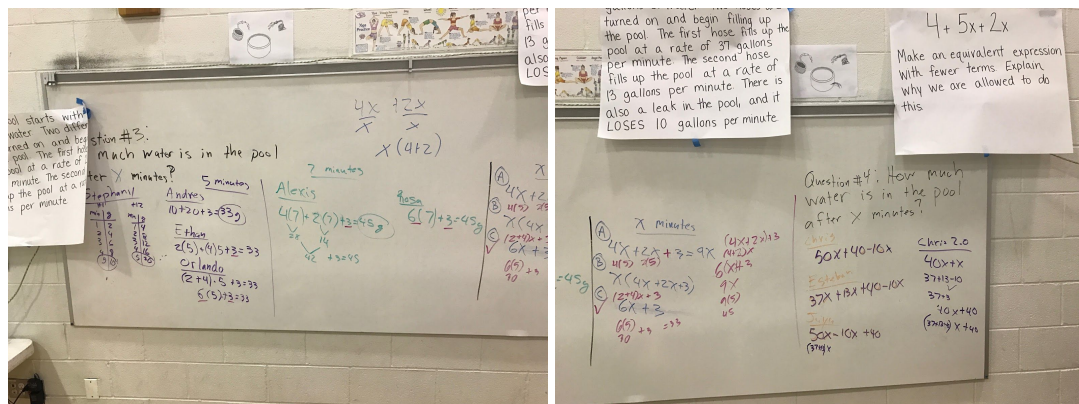 4x + 2x
x x
x(4+2)
ool starts with
water. Two differ
rned on and beg
pool. The first ho
at a rate of
minute. The second
up the pool at a ra
s per minute.
stion #3:
much water is in the pool
ter x minutes?
Stephani
+2
min g
1 2
2 4
3 6
Andres
5 minutes
10+20+3=33g
Ethan
2(5)+(4)5+3=33
Orlando
(2+4)·5+3=33
6(5)+3=33
7 minutes
Alexis
4(7)+2(7)+3=45g
28 14
42 +3=45
Rosa
6(7)+3=45g
per
fills
13 g
also
LOS
A
4x+2
B
4(5) 2(5)
x(4x
C
(2+4)x+
6x+3
6(5)+3
30
turned on and begin filling up
the pool. The first hose fills up the
pool at a rate of 37 gallons
per minute. The second hose
fills up the pool at a rate of
13 gallons per minute. There is
also a leak in the pool, and it
LOSES 10 gallons per minute
4 + 5x + 2x
Make an equivalent expression
with fewer terms. Explain
why we are allowed to do
this.
=45g
x minutes
A
4x+2x+3=9x
B
4(5) 2(5)
x(4x+2x+3)
C
(2+4)x+3
6x+3
6(5)+3=33
30
(4x+2x)+3
6(x+3
9x
9(5)
45
Question #4: How much
water is in the pool
after x minutes?
Chris
50x+40-10x
Esteban
37x+13x+40-10x
Julia
50x-10x+40
Chris 2.0
40x+x
37+13-10
37+3
40x+40
x+40